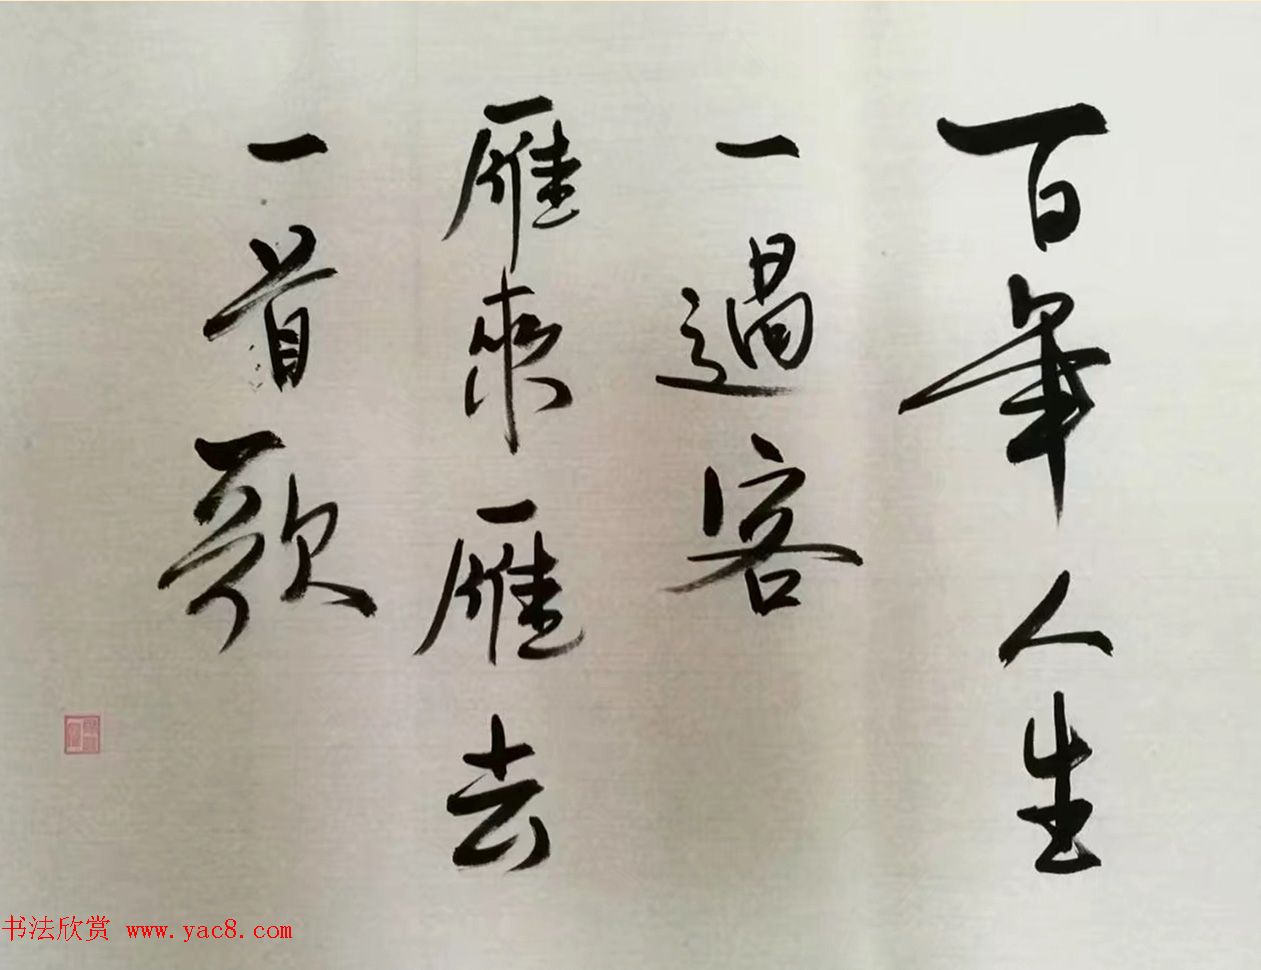 百年人生
一過客
雁來雁去
一首歌
书法欣赏 www.yac8.com